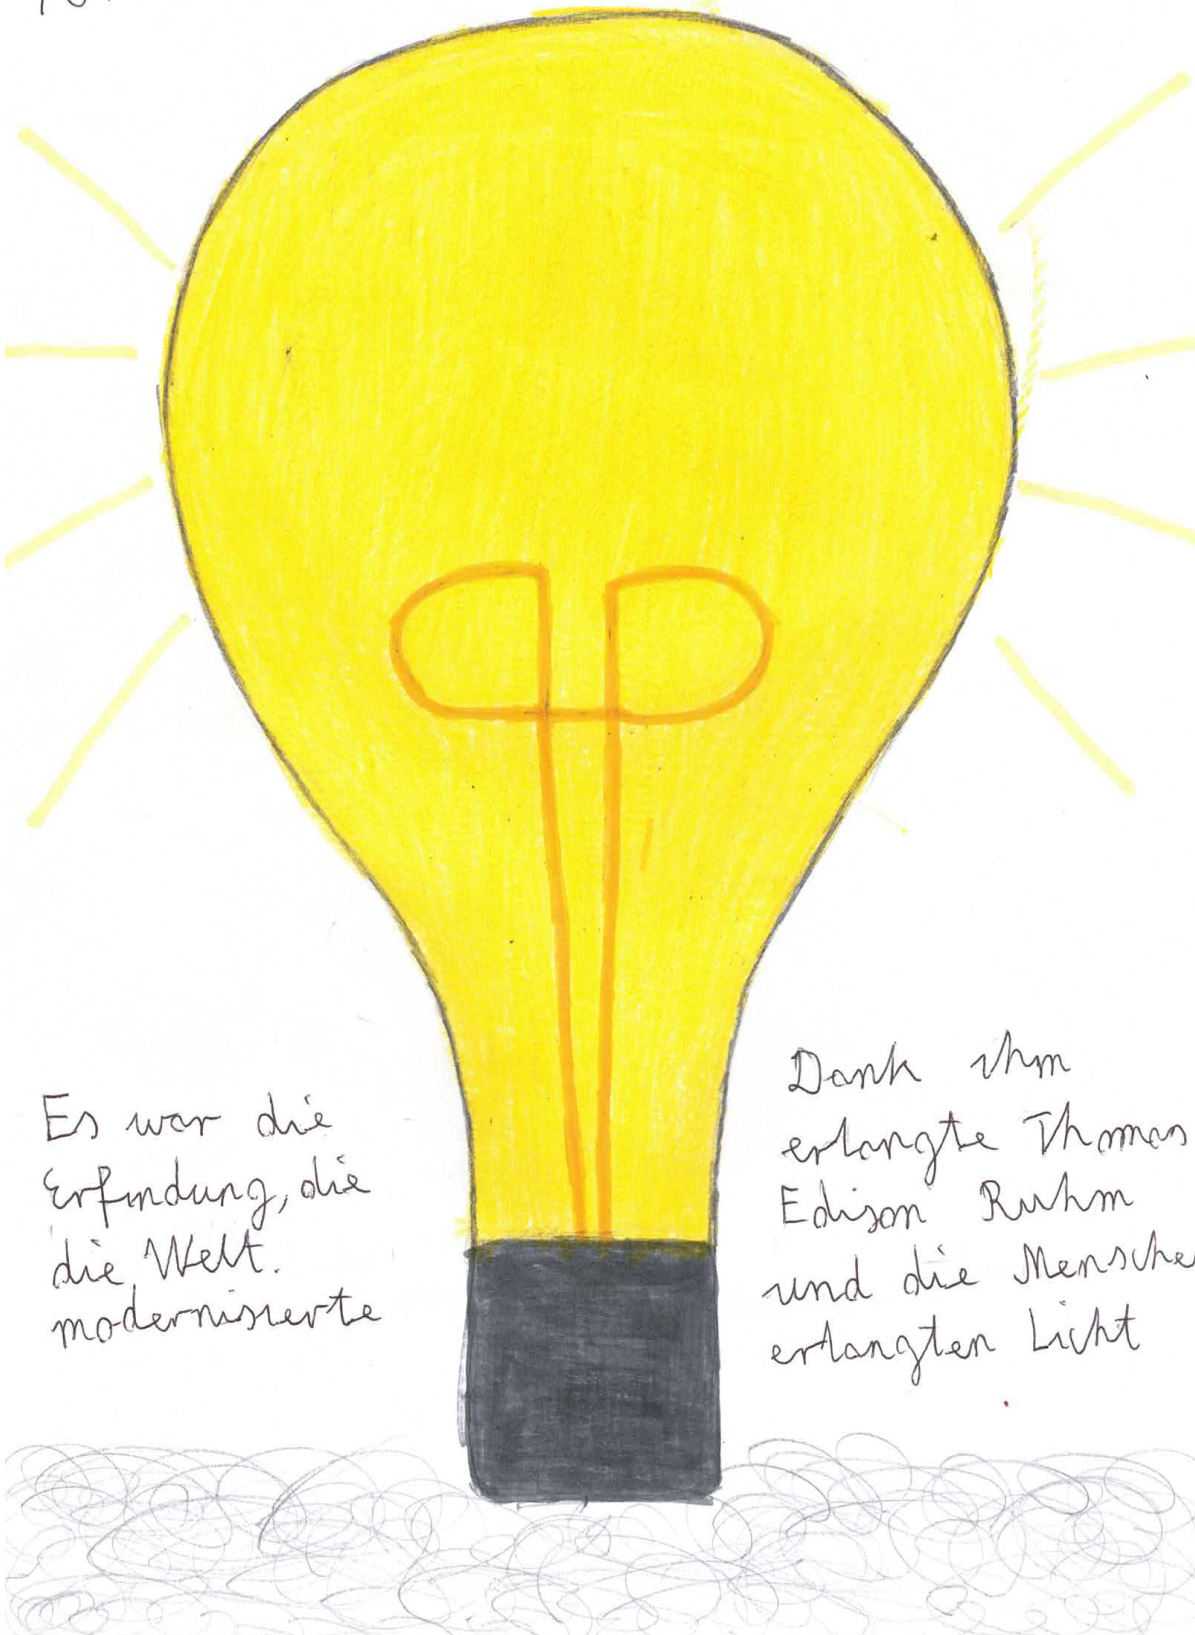 Es war die
Erfindung, die
die Welt.
modernisierte
Dank ihm
erlangte Thomas
Edison Ruhm
und die Mensche
erlangten Licht